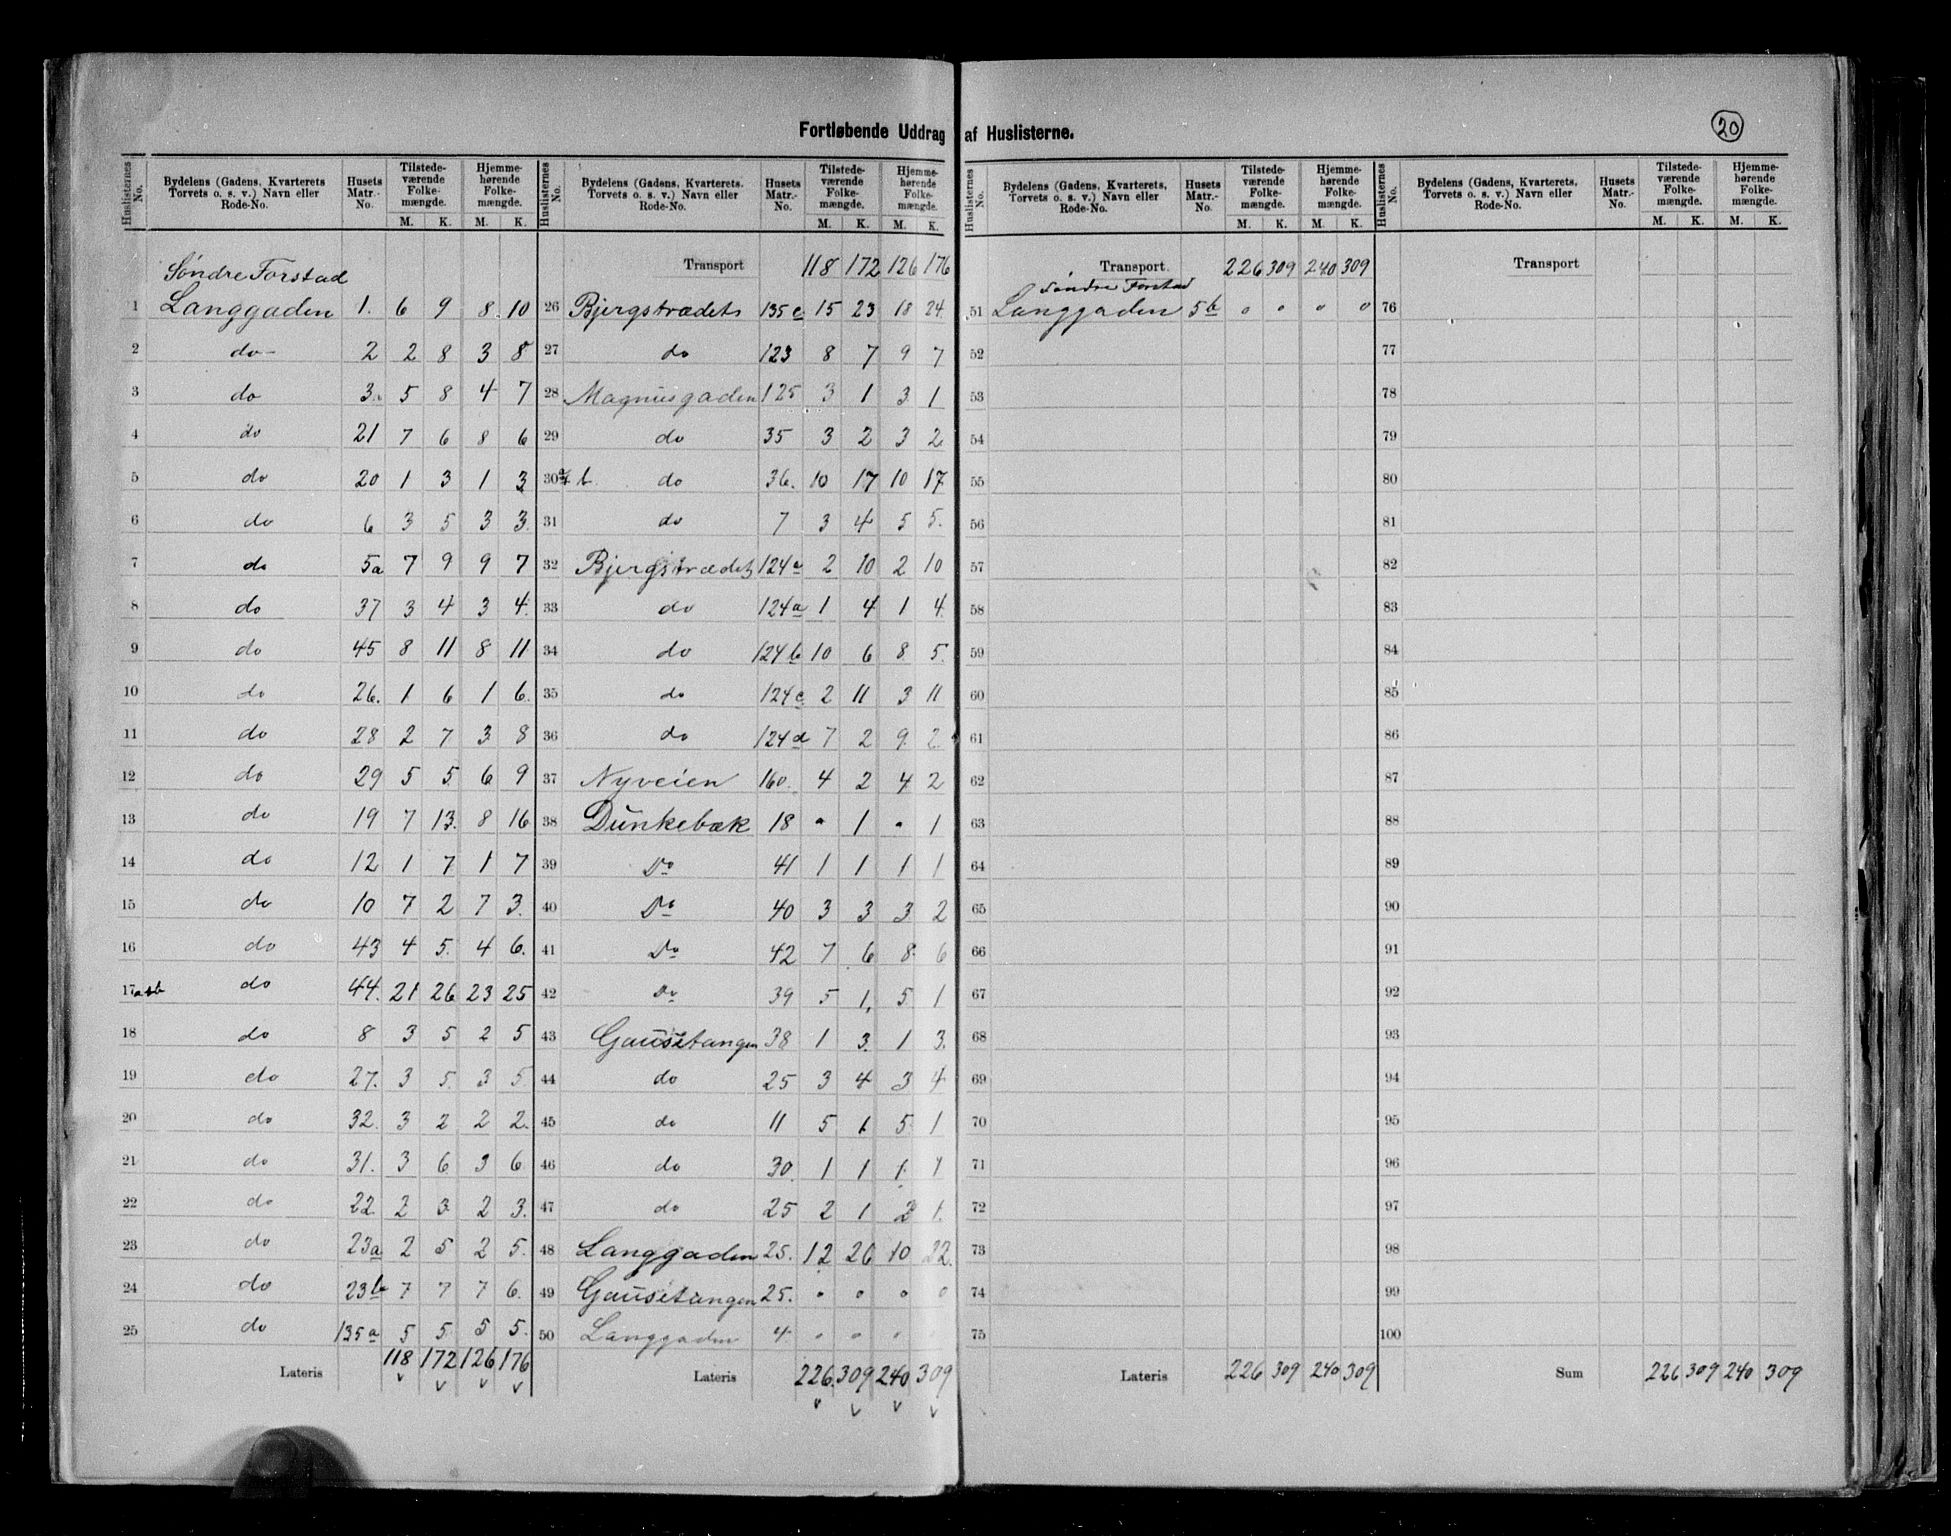 Fortløbende Uddrag af Huslisterne.
20
Huslisternes No. | Bydelens (Gadens, Kvarterets Torvets o. s. v.) Navn eller Rode-No. | Husets Matr.-No. | Tilstedeværende Folkemængde. M. K. | Hjemmehørende Folkemængde. M. K.
Søndre Forstad
1 Langgaden 1. 6 9 8 10
2 do 2 2 8 3 8
3 do 3. 5 8 4 7
4 do 21 7 6 8 6
5 do 20 1 3 1 3
6 do 6 3 5 3 3.
7 do 5a 7 9 9 7
8 do 37 3 4 3 4.
9 do 45 8 11 8 11
10 do 26. 1 6 1 6.
11 do 28 2 7 3 8
12 do 29 5 5 6 9
13 do 19 7 13. 8 16
14 do 12 1 7 1 7
15 do 10 7 2 7 3.
16 do 43 4 5. 4 6.
17 a+b do 44. 21 26 23 25
18 do 8 3 5 2 5
19 do 27. 3 5. 3 5
20 do 32. 3 2 2 2.
21 do 31. 3 6 3 6
22 do 22 2 3 2 3.
23 do 23a 2 5 2 5.
24 do 23b 7 7 7 6.
25 do 135a 5 5 5 5.
Lateris 118 172 126 176
Huslisternes No. | Bydelens (Gadens, Kvarterets, Torvets o. s. v.) Navn eller Rode-No. | Husets Matr.-No. | Tilstedeværende Folkemængde. M. K. | Hjemmehørende Folkemængde. M. K.
Transport 118 172 126 176
26 Bjergstrædets 135c 15 23 18 24.
27 do 123 8 7 9 7
28 Magnusgaden 125 3 1 3 1
29 do 35 3 2 3 2
30 a+b do 36. 10 17 10 17.
31 do 7 3 4 5 5.
32 Bjergstrædet 124a 2 10 2 10
33 do 124a 1 4 1 4.
34 do 124b 10 6 8 5.
35 do 124c 2 11 3 11
36 do 124d 7 2 9 2
37 Nyveien 160. 4 2 4 2
38 Dunkebæk 18 " 1 " 1
39 Do 41 1 1 1 1
40 Do 40 3 3 3 2
41 Do 42 7 6 8 6
42 Do 39 5 1, 5 1
43 Gausetangen 38 1 3. 1 3.
44 do 25 3 4 3 4
45 do 11 5 1 5 1
46 do 30. 1 1 1 1
47 do 25 2 1 2 1.
48 Langgaden 25. 12 26 10 22.
49 Gausetangen 25. o o o o
50 Langgaden 4. o o o
Lateris 226. 309 240 309
Huslisternes No. | Bydelens (Gadens, Kvarterets, Torvets o. s. v.) Navn eller Rode-No. | Husets Matr.-No. | Tilstedeværende Folkemængde. M. K. | Hjemmehørende Folkemængde. M. K.
Transport 226 309 240 309
Søndre Forstad
51 Langgaden 5b o o o o
52
53
54
55
56
57
58
59
60
61
62
63
64
65
66
67
68
69
70
71
72
73
74
75
Lateris 226 309 240 309
Huslisternes No. | Bydelens (Gadens, Kvarterets, Torvets o. s. v.) Navn eller Rode-No. | Husets Matr.-No. | Tilstedeværende Folkemængde. M. K. | Hjemmehørende Folkemængde. M. K.
Transport
76
77
78
79
80
81
82
83
84
85
86
87
88
89
90
91
92
93
94
95
96
97
98
99
100
Sum 226 309 240 309